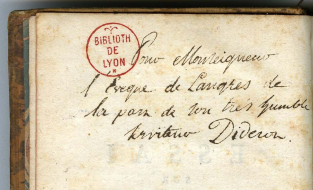 BIBLIOTH
DE
LYON
Pour Monseigneur
l'Eveque de Langres de
la part de son tres humble
serviteur Diderot.